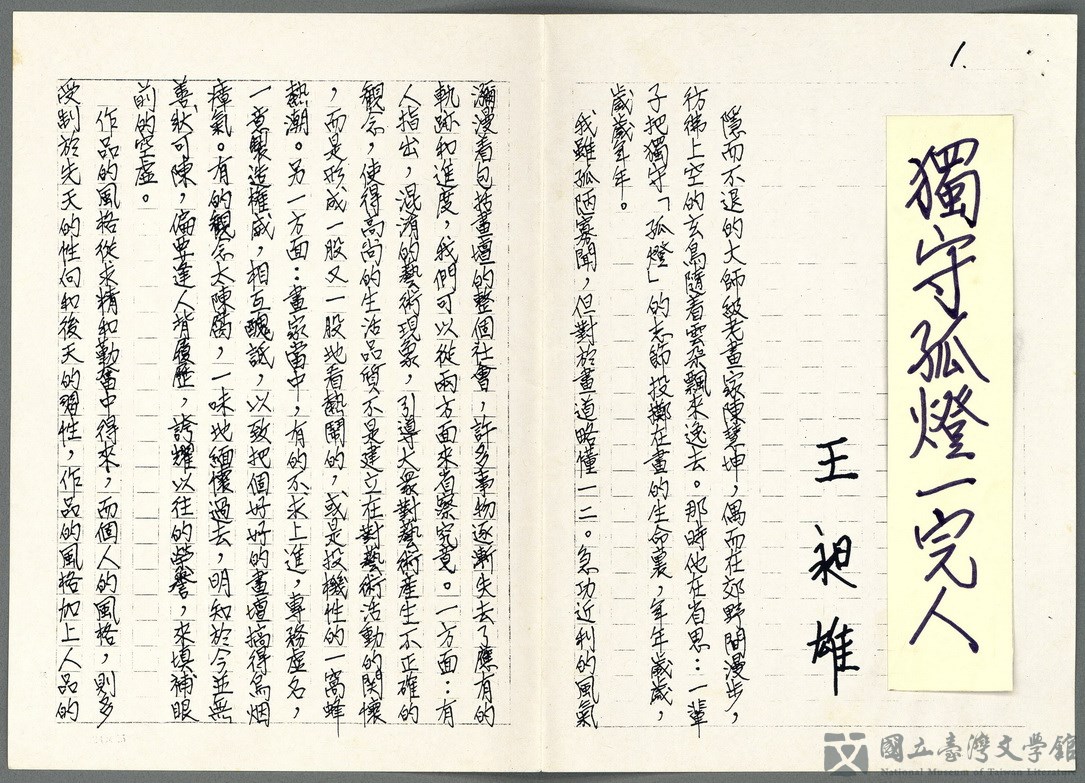 1.
獨守孤燈一完人
王昶雄
隱而不退的大師級老畫家陳慧坤，偶而在郊野間漫步，
彷彿上空的玄鳥隨着雲朵飄來逸去。那時他在省思：一輩
子把獨守「孤燈」的志節投擲在畫的生命裏，年年歲歲，
歲歲年年。
我雖孤陋寡聞，但對於畫道略懂一二。急功近利的風氣
瀰漫着包括畫壇的整個社會，許多事物逐漸失去了應有的
軌跡和進度，我們可以從兩方面來省察究竟。一方面：有
人指出，混淆的藝術現象，引導大衆對藝術產生不正確的
觀念，使得高尚的生活品質不是建立在對藝術活動的関懷
，而是形成一股又一股地看熱鬧的，或是投機性的一窩蜂
熱潮。另一方面：畫家當中，有的不求上進，專務虛名，
一意製造權威，相互醜詆，以致把個好好的畫壇搞得烏烟
瘴氣。有的觀念太陳腐，一味地緬懷過去，明知於今並無
善狀可陳，偏要逢人背履歷，誇耀以往的榮譽，來填補眼
前的空虛。
作品的風格從求精和勤奮中得來，而個人的風格，則多
受制於先天的性向和後天的習性，作品的風格加上人品的
國立臺灣文學館
National Museum of Taiwan Literature